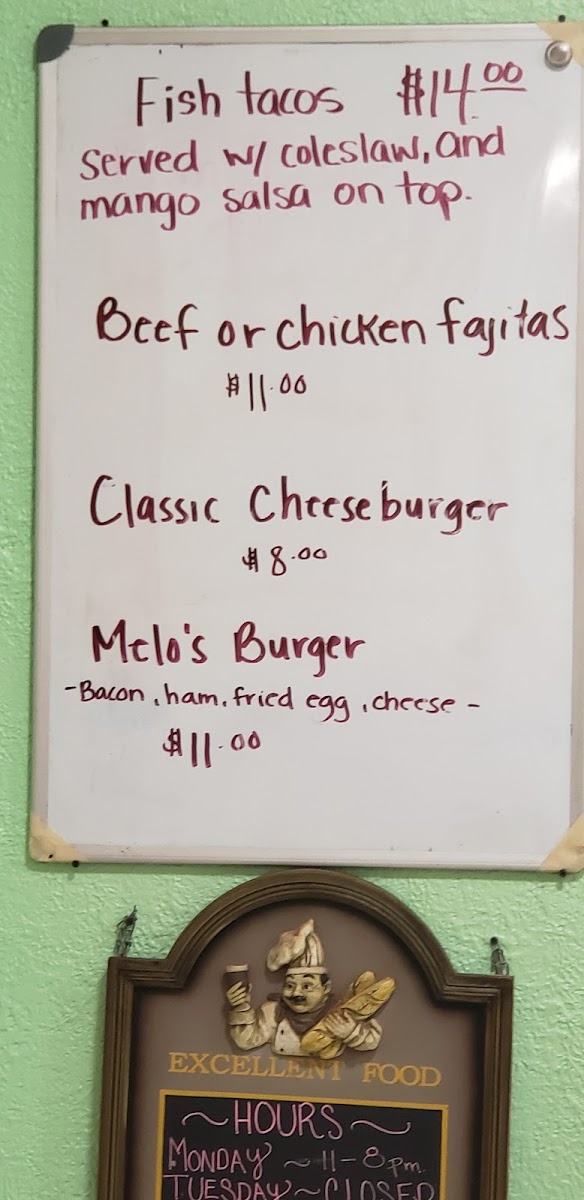 Fish tacos $14.00
Served w/ coleslaw, and
mango salsa on top.
Beef or chicken fajitas
$11.00
Classic Cheeseburger
$8.00
Melo's Burger
-Bacon, ham, fried egg, cheese-
$11.00
EXCELLENT FOOD
~HOURS~
MONDAY ~ 11-8pm.
TUESDAY ~ CLOSED